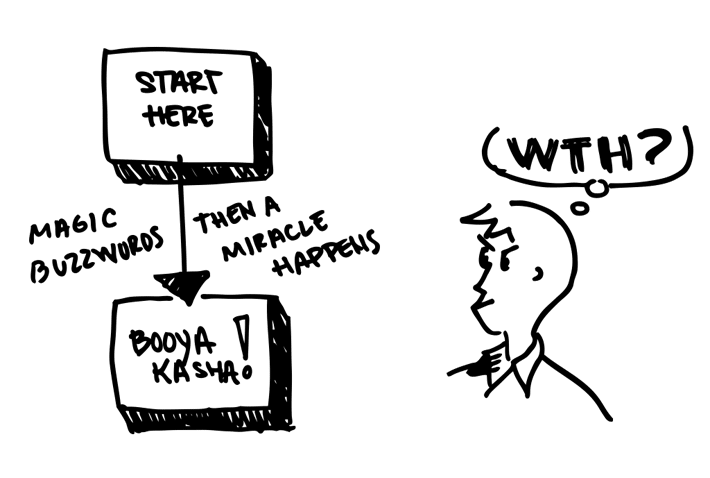 START
HERE
MAGIC
BUZZWORDS
THEN A
MIRACLE
HAPPENS
BOOYA
KASHA!
WTH?